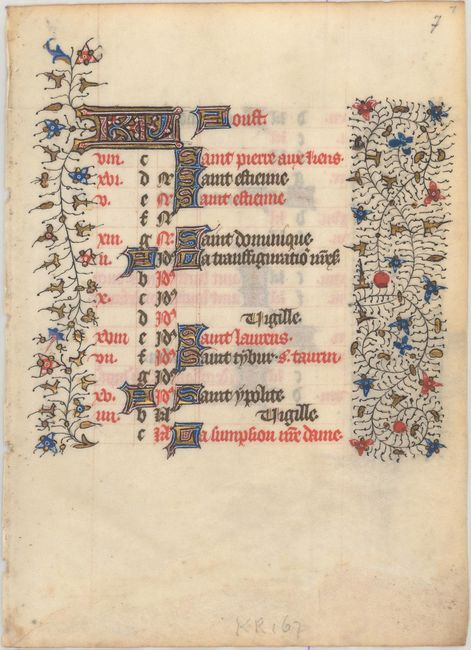 7
KL Aoust.
viii. c Saint pierre aux liens.
xvi. d N. Saint estienne
v. e N. Saint estienne
f N.
xiii. g N. Saint dominique.
ii. A Id. La transfiguratiō nr̄e s̄
b Id.
x. c Id.
d Id. Vigille
xviii e Id. Saint laurens.
vii. f Id. Saint tybur. s. taurin.
g Id.
xv. A Id. Saint ypolite
iiii. b kl Vigille
c kl La sumpsion nr̄e dame.